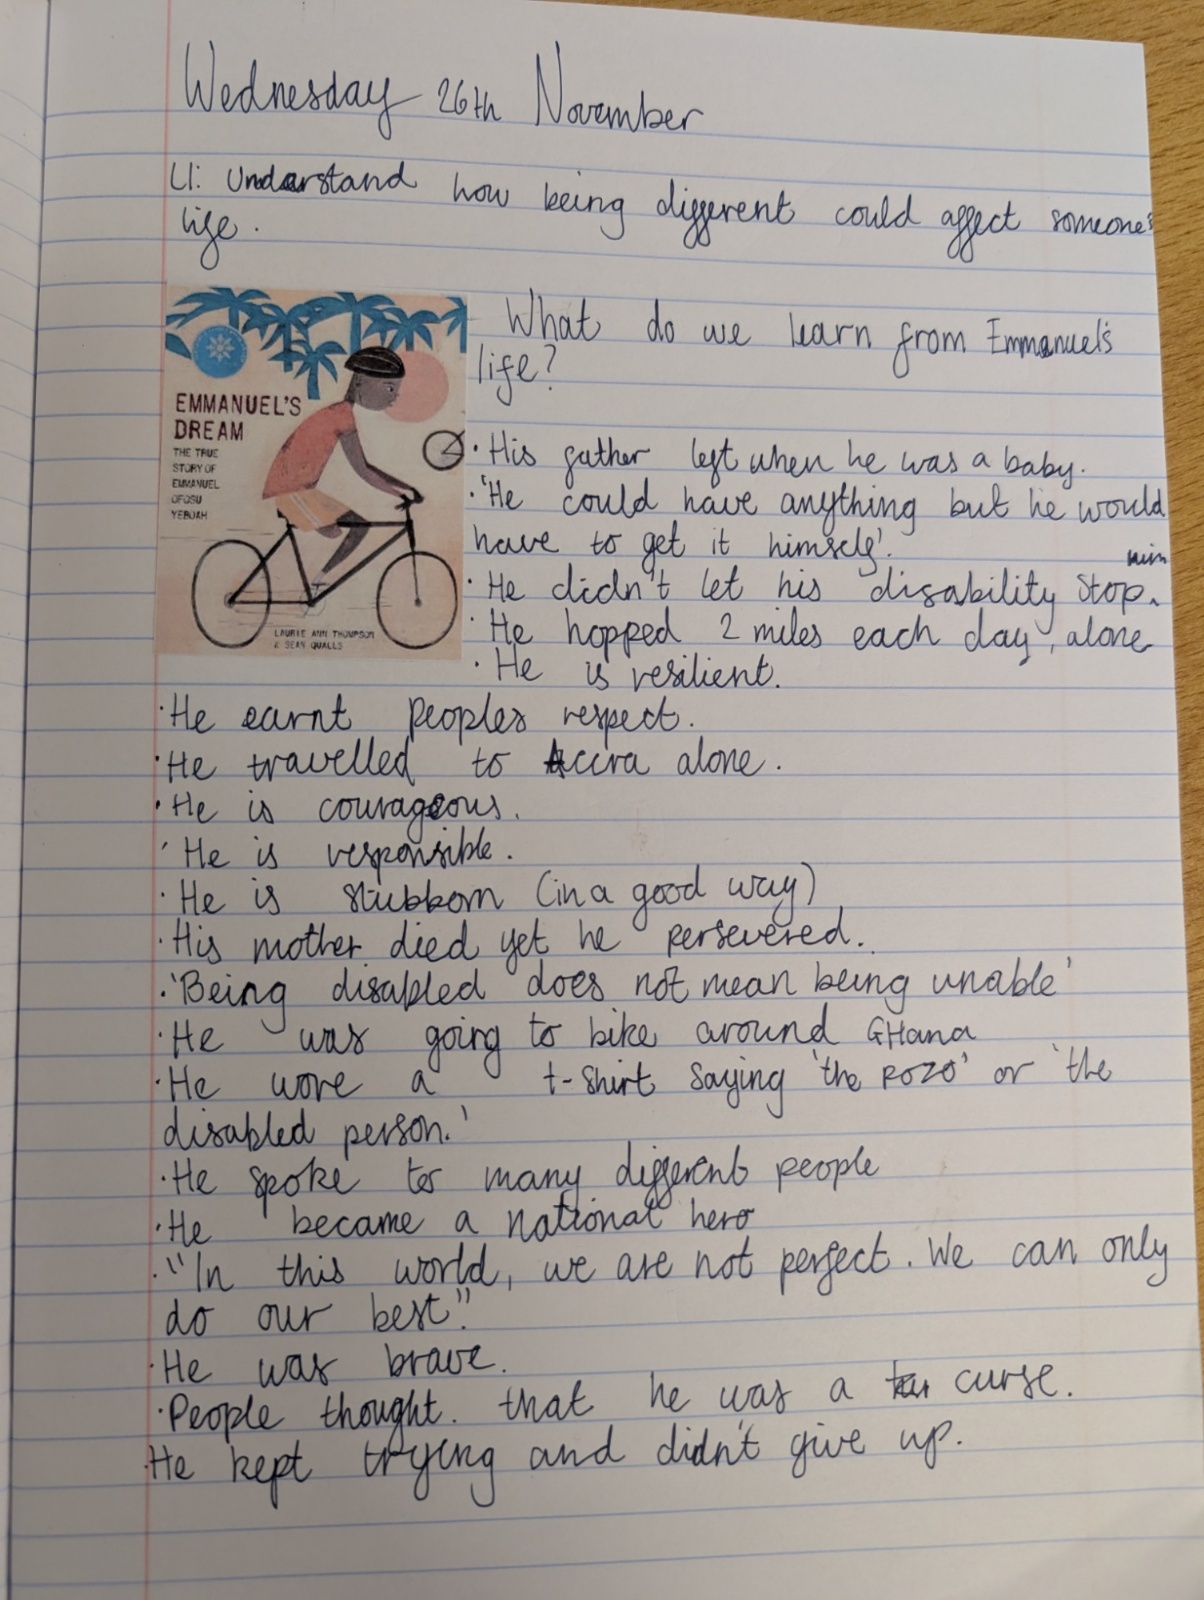 Wednesday 26th November
LI: Understand how being different could affect someone's
life.
EMMANUEL'S
DREAM
THE TRUE
STORY OF
EMMANUEL
OFOSU
YEBOAH
LAURIE ANN THOMPSON
& SEAN QUALLS
What do we learn from Emmanuel's
life?
· His father left when he was a baby.
· 'He could have anything but he would
have to get it himself'.
· He didn't let his disability stop him.
· He hopped 2 miles each day, alone
· He is resilient.
· He earnt peoples respect.
· He travelled to Accra alone.
· He is courageous.
· He is responsible.
· He is stubborn (in a good way)
· His mother died yet he persevered.
· 'Being disabled does not mean being unable'
· He was going to bike around GHana
· He wore a t-shirt saying 'the pozo' or 'the
disabled person.'
· He spoke to many different people
· He became a national hero
· "In this world, we are not perfect. We can only
do our best".
· He was brave.
· People thought. that he was a curse.
· He kept trying and didn't give up.